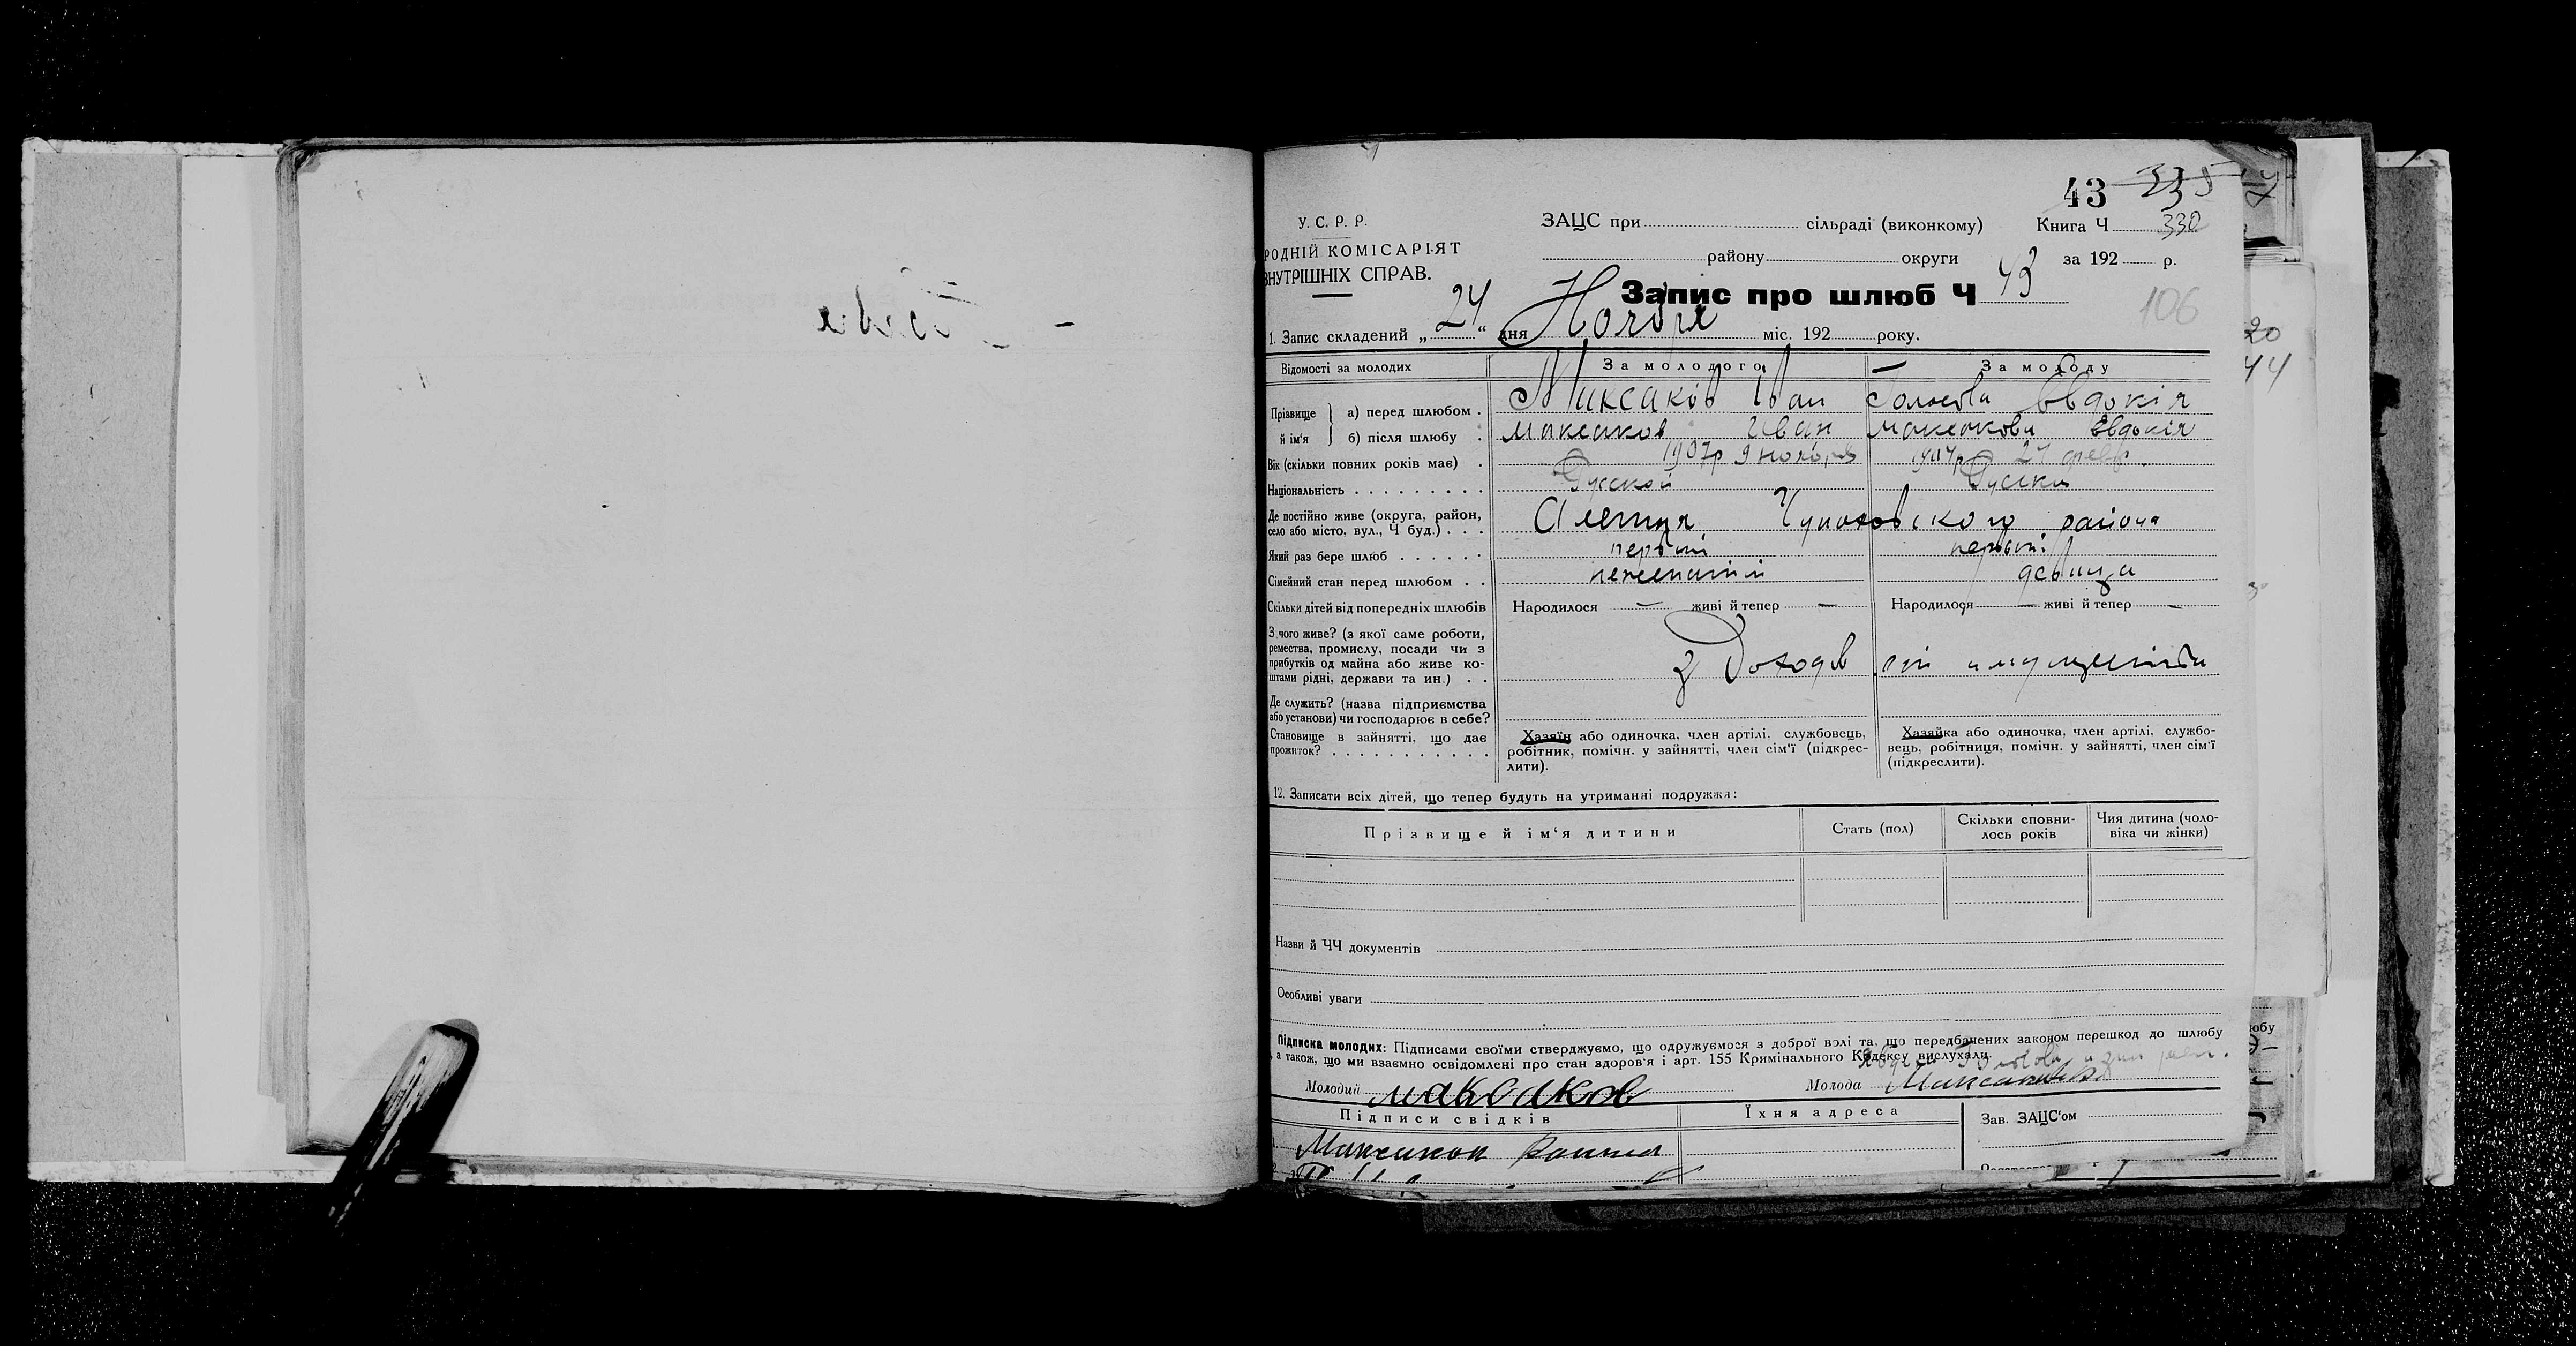 43 335
У. С. Р. Р.
ЗАЦС при сільраді (виконкому) Книга Ч 330
РОДНІЙ КОМІСАРІЯТ
ВНУТРІШНІХ СПРАВ.
району округи за 192 р.
Запис про шлюб Ч 43
106
1. Запис складений „24“ дня Ноября міс. 192 року.
Відомості за молодих За молодого За молоду
Прізвище й ім'я а) перед шлюбом . Максаків Іван Евдокія
б) після шлюбу . Максаков Иван Максакова Евдокія
Вік (скільки повних років має) . 1907р 9 ноября 27 февр.
Національність . . . . . . . . . Русской Руска
Де постійно живе (округа, район,
село або місто, вул., Ч буд.) . . . района
Який раз бере шлюб . . . . . . первий первий
Сімейний стан перед шлюбом . . неженатий девица
Скільки дітей від попередніх шлюбів Народилося — живі й тепер — Народилося — живі й тепер —
З чого живе? (з якої саме роботи,
ремества, промислу, посади чи з
прибутків од майна або живе ко-
штами рідні, держави та ин.) . . з Доходів от имущества
Де служить? (назва підприємства
або установи) чи господарює в себе?
Становище в зайнятті, що дає
прожиток? . . . . . . . . . . .
Хазяїн або одиночка, член артілі, службовець,
робітник, помічн. у зайнятті, член сім'ї (підкрес-
лити).
Хазяйка або одиночка, член артілі, службо-
вець, робітниця, помічн. у зайнятті, член сім'ї
(підкреслити).
12. Записати всіх дітей, що тепер будуть на утриманні подружжя:
Прізвище й ім'я дитини Стать (пол) Скільки сповни-
лось років Чия дитина (чоло-
віка чи жінки)
Назви й ЧЧ документів
Особливі уваги
Підписка молодих: Підписами своїми стверджуємо, що одружуємося з доброї волі та, що передбачених законом перешкод до шлюбу
, а також, що ми взаємно освідомлені про стан здоров'я і арт. 155 Кримінального Кодексу вислухали.
Молодий Максаков Молода
Підписи свідків Їхня адреса Зав. ЗАЦС'ом
20
44